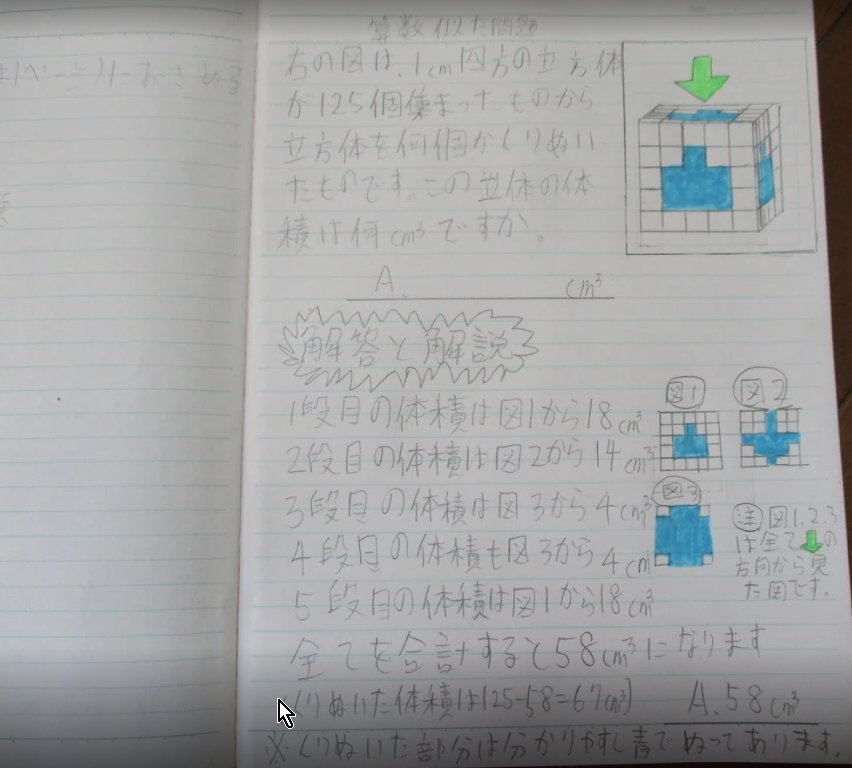 算数似た問題
右の図は、1cm四方の立方体
が125個集まったものから
立方体を何個かくりぬい
たものです。この立体の体
積は何cm³ですか。
A. cm³
解答と解説
1段目の体積は図1から18cm³
2段目の体積は図2から14cm³
3段目の体積は図3から4cm³
4段目の体積も図3から4cm³
5段目の体積は図1から18cm³
全てを合計すると58cm³になります
くりぬいた体積は(125-58=67cm³)
A.58cm³
※くりぬいた部分は分かりやすく青でぬってあります。
図1
図2
図3
注 図1.2.3
は全て⬇の
方向から見
た図です。